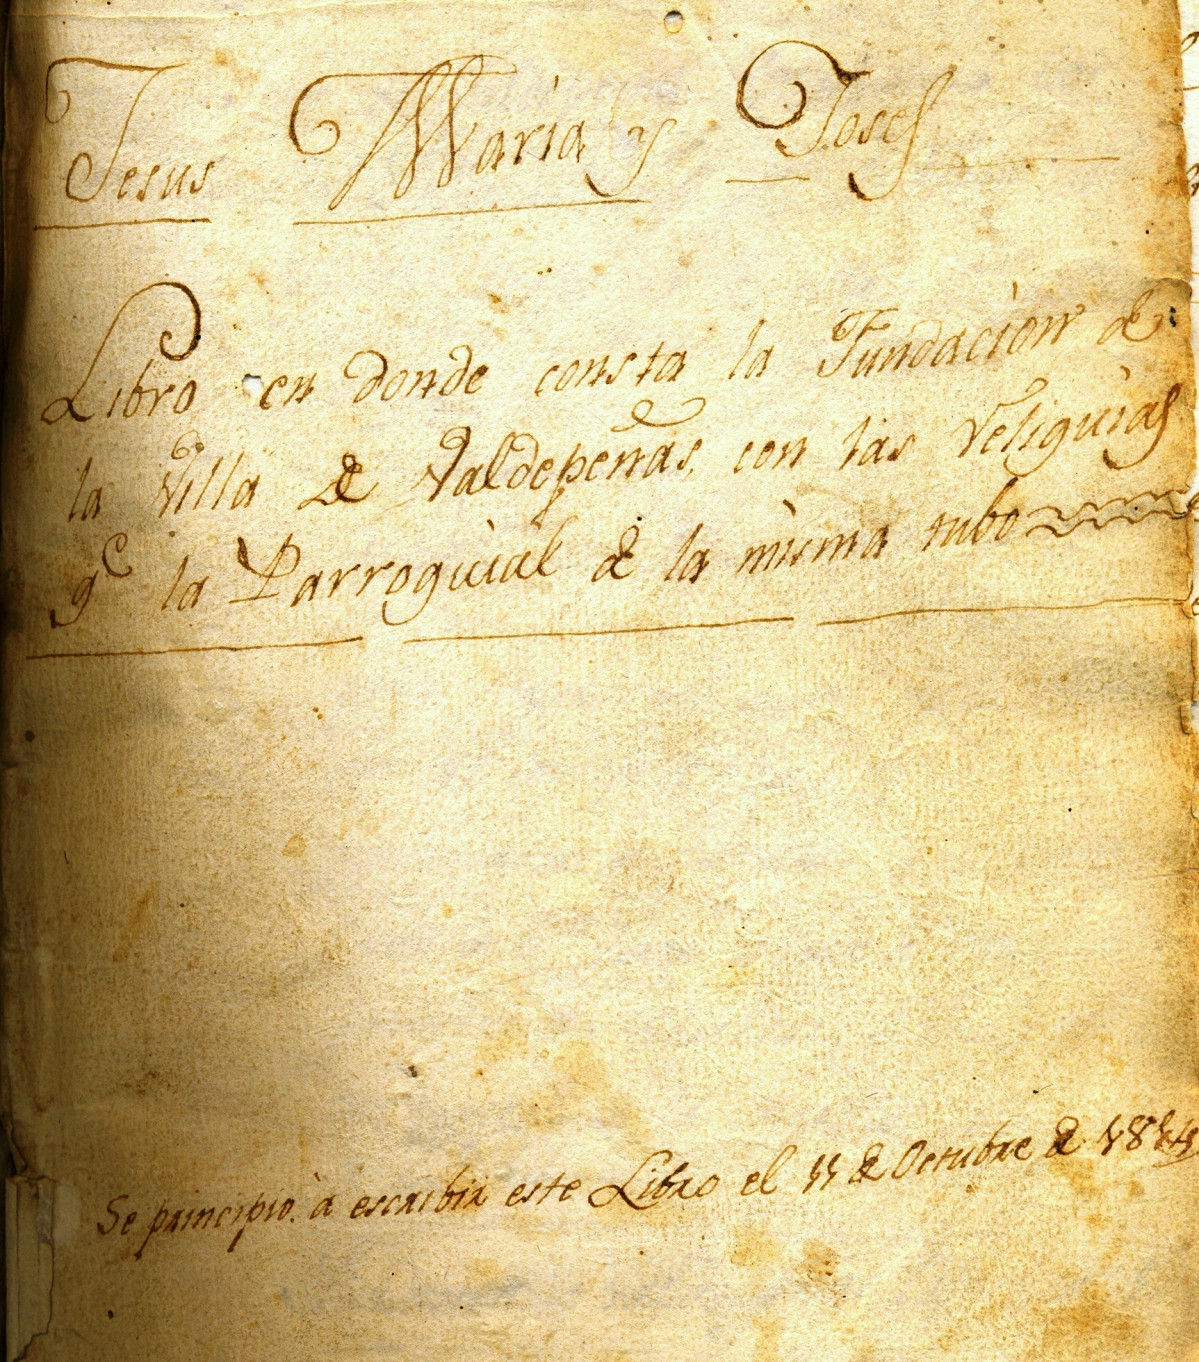 Jesus Maria y Josef
Libro en donde consta la Fundacion de
la Villa de Valdepeñas, con las reliquias
q.e la Parroquial de la misma tubo
Se principio à escribir este Libro el 11 de Octubre de 1814